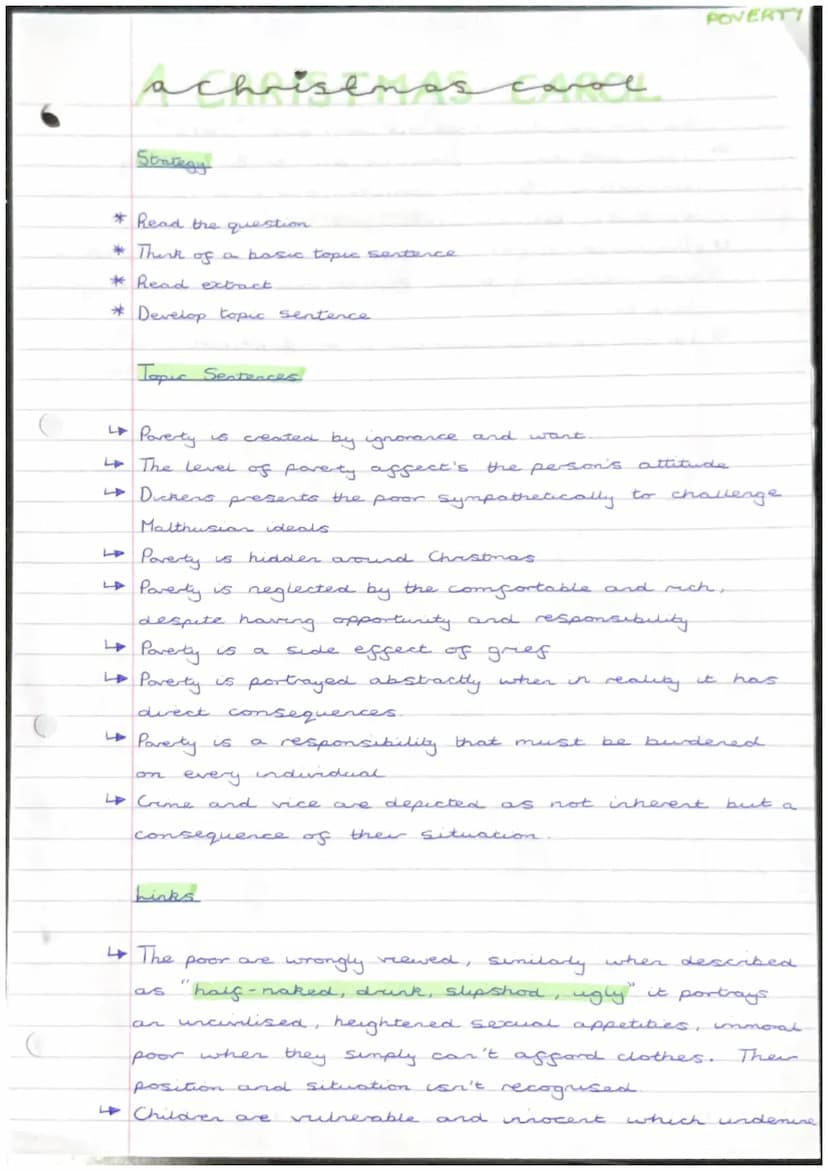 POVERTY
A CHRISTMAS CAROL
a christmas carol
Strategy
* Read the question
* Think of a basic topic sentence
* Read extract
* Develop topic sentence
Topic Sentences
↳ Poverty is created by ignorance and want.
↳ The level of poverty affect's the person's attitude
↳ Dickens presents the poor sympathetically to challenge
Malthusian ideals
↳ Poverty is hidden around Christmas
↳ Poverty is neglected by the comfortable and rich,
despite having opportunity and responsibility
↳ Poverty is a side effect of grief
↳ Poverty is portrayed abstractly when in reality it has
direct consequences.
↳ Poverty is a responsibility that must be burdened
on every individual
↳ Crime and vice are depicted as not inherent but a
consequence of their situation.
Links
↳ The poor are wrongly viewed, similarly when described
as "half-naked, drunk, slipshod, ugly" it portrays
an uncivilised, heightened sexual appetities, immoral
poor when they simply can't afford clothes. Their
position and situation isn't recognised.
↳ Children are vulnerable and innocent which undermine